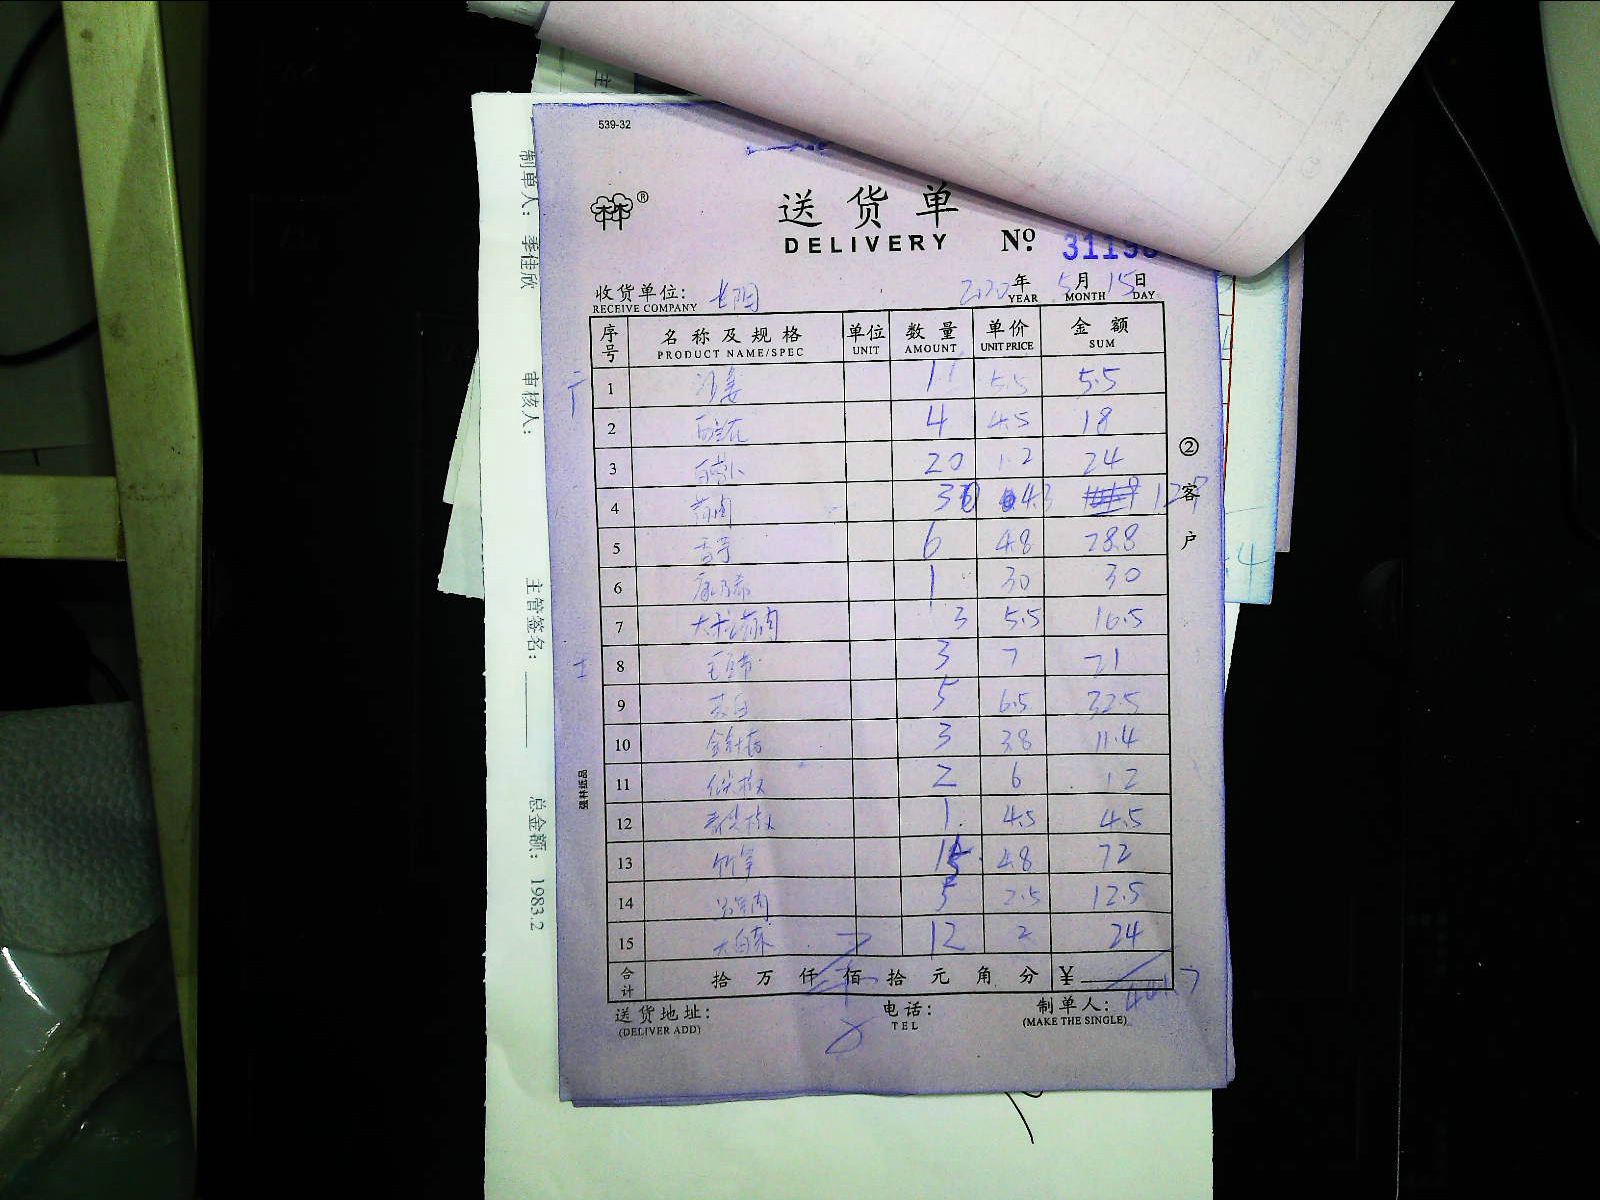 539-32
送货单
DELIVERY No 31193
收货单位: 2020年 5月 15日
RECEIVE COMPANY YEAR MONTH DAY
序号 名称及规格 单位 数量 单价 金额
PRODUCT NAME/SPEC UNIT AMOUNT UNIT PRICE SUM
1 沙姜 1.1 5.5 5.5
2 西兰花 4 4.5 18
3 白萝卜 20 1.2 24
4 30 4.3 129
5 香芋 6 4.8 28.8
6 1 30 30
7 3 5.5 16.5
8 3 7 21
9 5 6.5 32.5
10 金针菇 3 3.8 11.4
11 2 6 12
12 青尖椒 1 4.5 4.5
13 竹笋 15 4.8 72
14 5 2.5 12.5
15 大白菜 12 2 24
合计 拾万仟佰拾元角分 ¥ 441.7
送货地址: 电话: 制单人:
(DELIVER ADD) TEL (MAKE THE SINGLE)
②客户
强林纸品
制单人: 季佳欣 审核人: 主管签名: 总金额: 1983.2